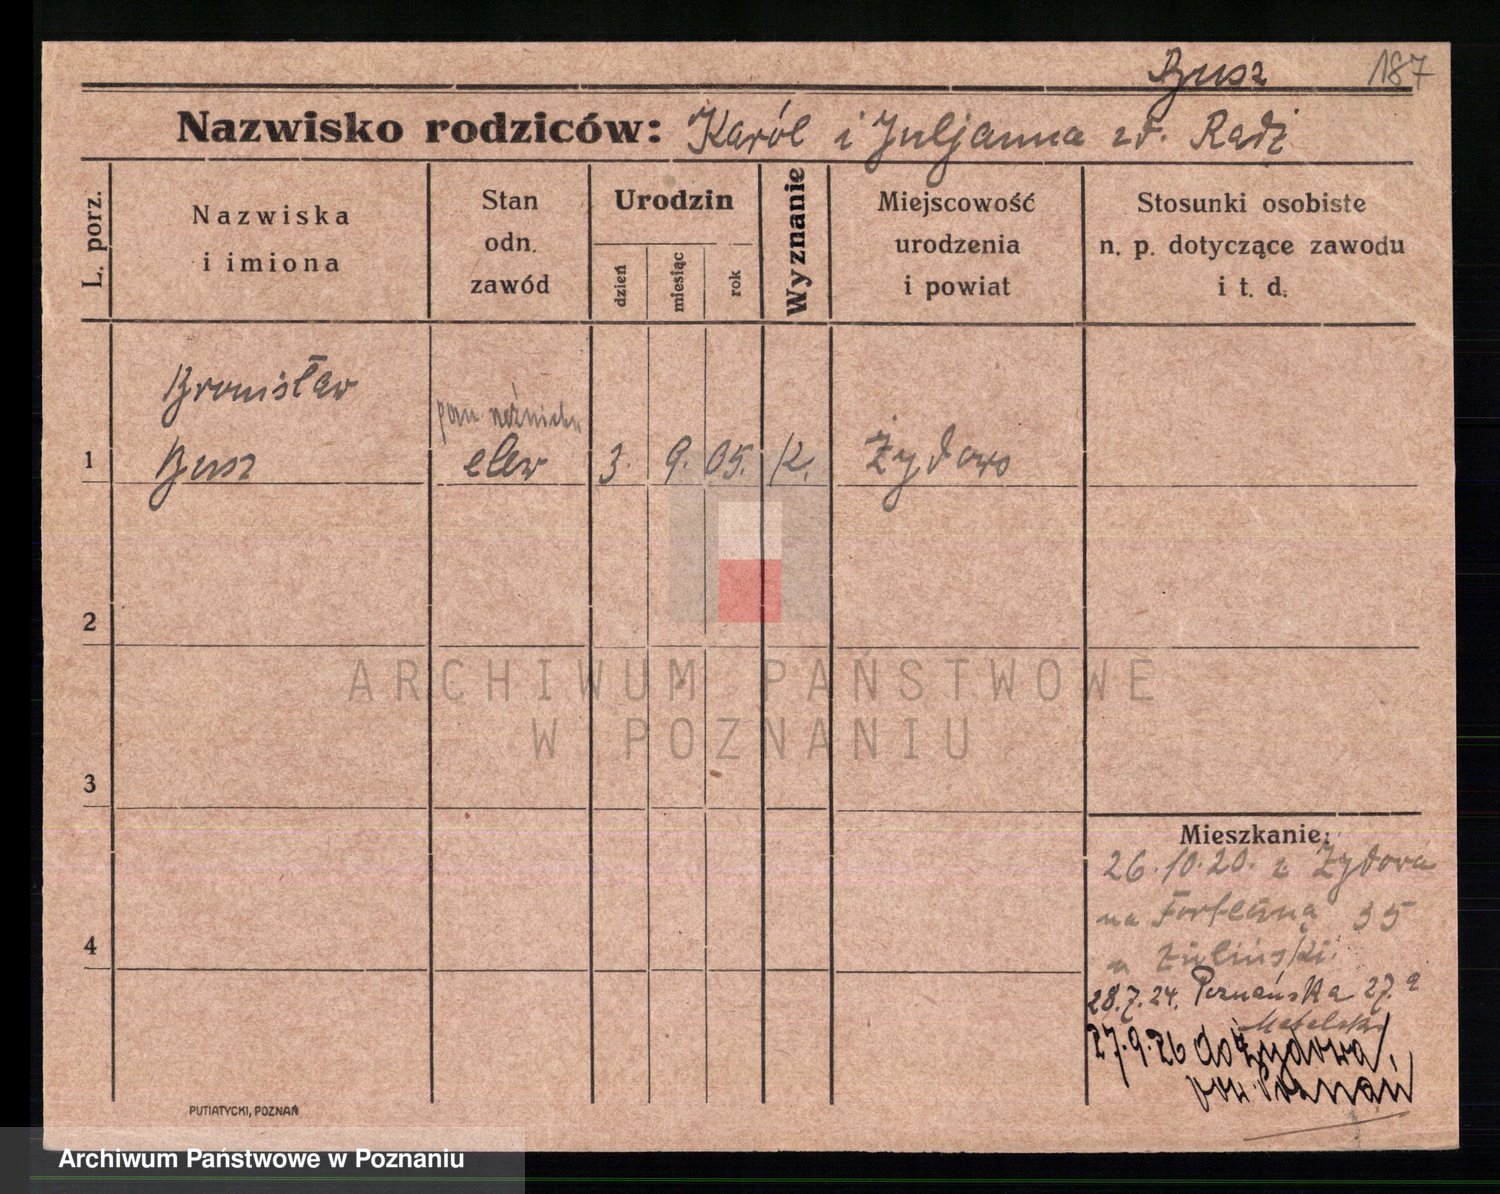 Busz 187
Nazwisko rodziców: Karól i Juljanna zd. Radź
L. porz.
Nazwiska
i imiona
Stan
odn.
zawód
Urodzin
dzień
miesiąc
rok
Wyznanie
Miejscowość
urodzenia
i powiat
Stosunki osobiste
n. p. dotyczące zawodu
i t. d.
Bronisław
1 Busz elew 3. 9. 05. K. Żydowo
2
3
4
ARCHIWUM PAŃSTWOWE
W POZNANIU
Mieszkanie:
26.10.20. z Żydowa
na Forteczną 35
u Zieliński
28.7.24. Poznańska 27.a
27.9.26 do Żydowa,
pow. Poznań
PUTIATYCKI, POZNAŃ
Archiwum Państwowe w Poznaniu